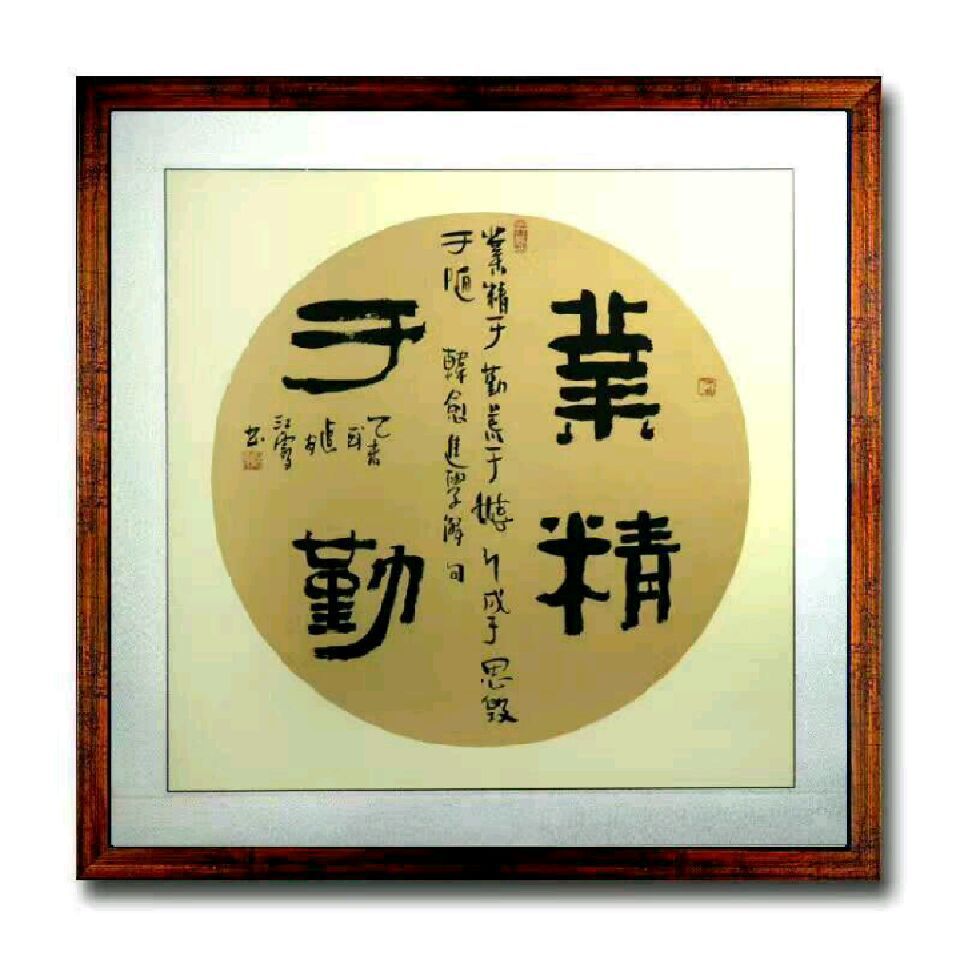 業精
于勤
業精于勤荒于嬉行成于思毀
于隨 韓愈進學解句
江雪
書